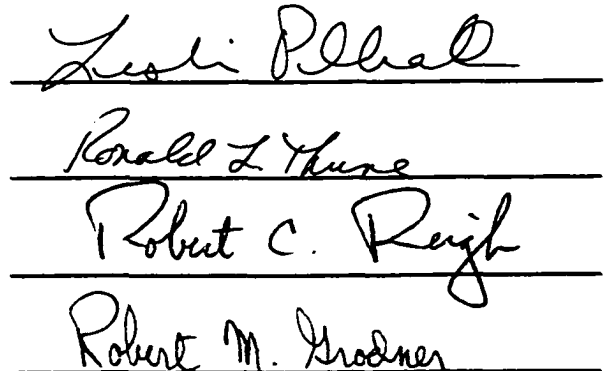 Leslie
Ronald L Thune
Robert C. Reigh
Robert M. Grodner